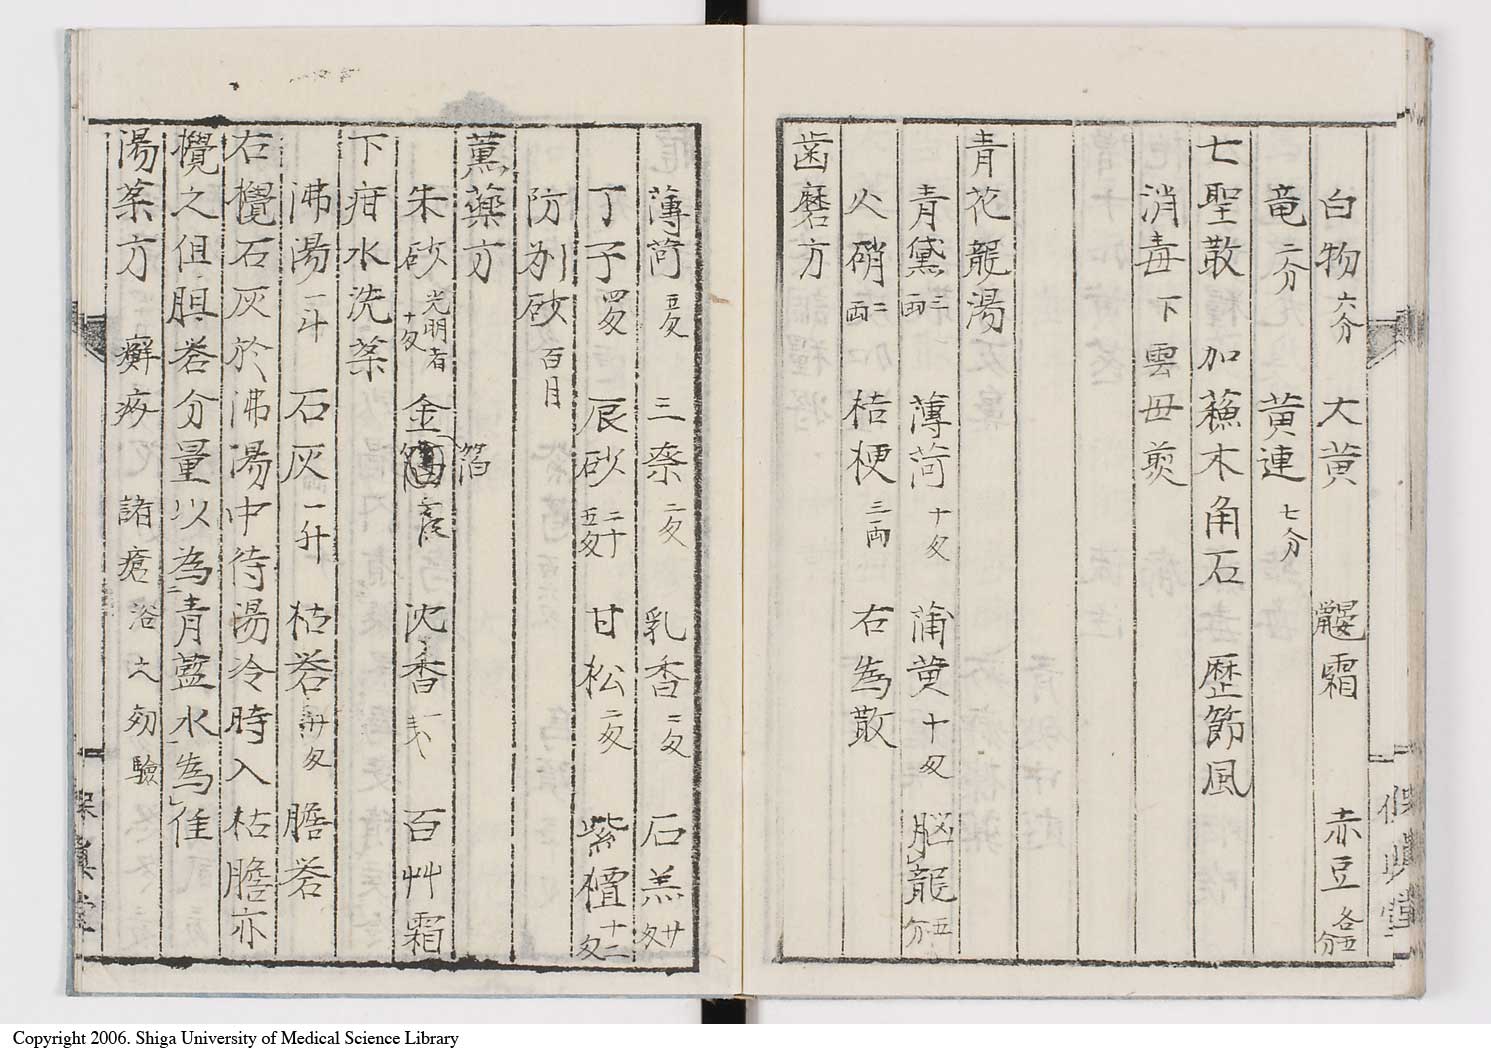 白物六分 大黄 鼹霜 赤豆各五分
竜二分 黄連七分
七聖散加蘓木角石 歴節風
消毒下雲母煎
青花龍湯
青黛三両 薄荷十匁 蒲黄十匁 脳龍五分
火硝二両 桔梗三両 右為散
歯磨方
薄荷五匁 三柰二匁 乳香二匁 石羔廿匁
丁子四匁 辰砂二十五匁 甘松二匁 紫檀十二匁
防州砂百目
薫藥方
朱砂光明者十匁 金箔 沈香 百艸霜
箔
下疳水洗茶
沸湯一斗 石灰一升 枯礬卅匁 膽礬
右攪石灰於沸湯中待湯冷時入枯膽亦
攪之但胆礬分量以為青藍水為佳
湯茶方 癬疥 諸瘡浴之効驗
Copyright 2006. Shiga University of Medical Science Library